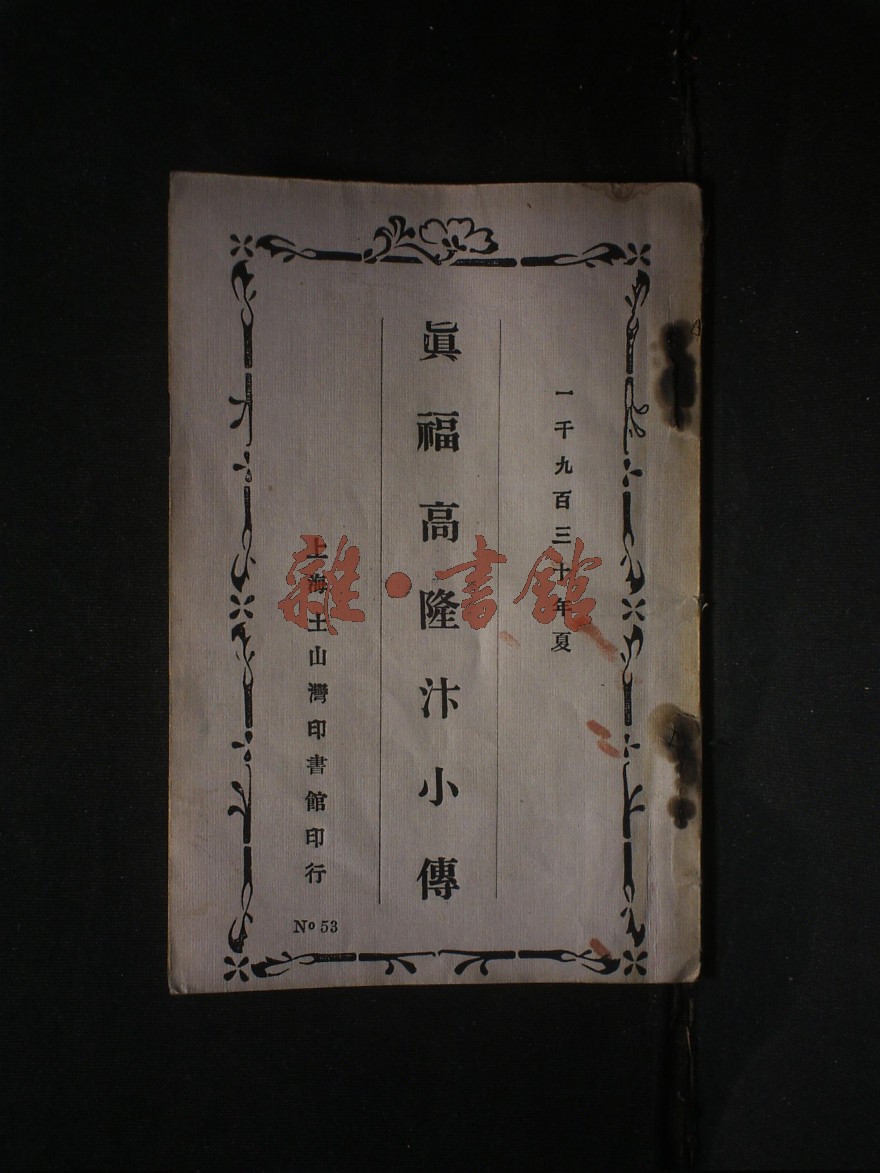 一千九百三十年夏
眞福高隆汴小傳
上海土山灣印書館印行
Nº 53
雜·書館